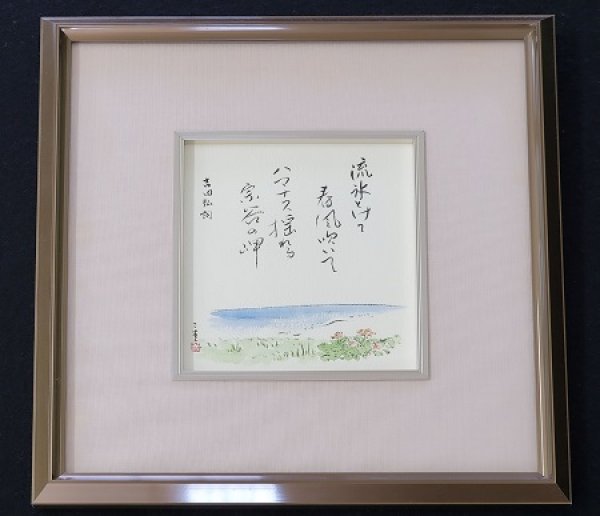 流氷とけて
春風吹いて
ハマナス揺れる
宗谷の岬
吉田弘 詞